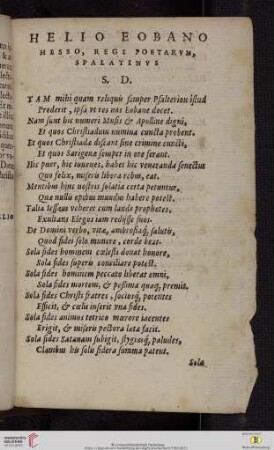 HELIO EOBANO
HESSO, REGI POETARVM,
SPALATINVS
S. D.
TAM mihi quam reliquis semper Psalterion istud
Proderit, ipsa vt res nos Eobane docet.
Nam sunt hic numeri Musis & Apolline digni,
Et quos Christiadum numina cuncta probent.
Et quos Christiadæ discant sine crimine cuncti,
Et quos Sarigenæ semper in ore ferant.
Hic puer, hic iuuenes, habet hic veneranda senectus
Quo felix, miseris libera rebus, eat.
Mentibus hinc nostris solatia certa petuntur,
Que nullis opibus mundus habere potest.
Talia Iesseus veheret cum laude prophetes,
Exultans Elegos iam redisse suos.
De Domini verbo, vitæ, ambrosiaque, salutis,
Quod fides solo munere, corde beat.
Sola fides hominem cælesti donat honore,
Sola fides superis conciliare potest.
Sola fides hominem peccato liberat omni,
Sola fides mortem, & pessima quæque, premit.
Sola fides Christi fratres, sociosque, potentes
Efficit, & cæli inserit vna fides.
Sola fides animos tetrico mærore iacentes
Erigit, & miseris pectora læta facit.
Sola fides Satanam subigit, stygiasque, paludes,
Clauibus his solis sidera summa patent.
Sola